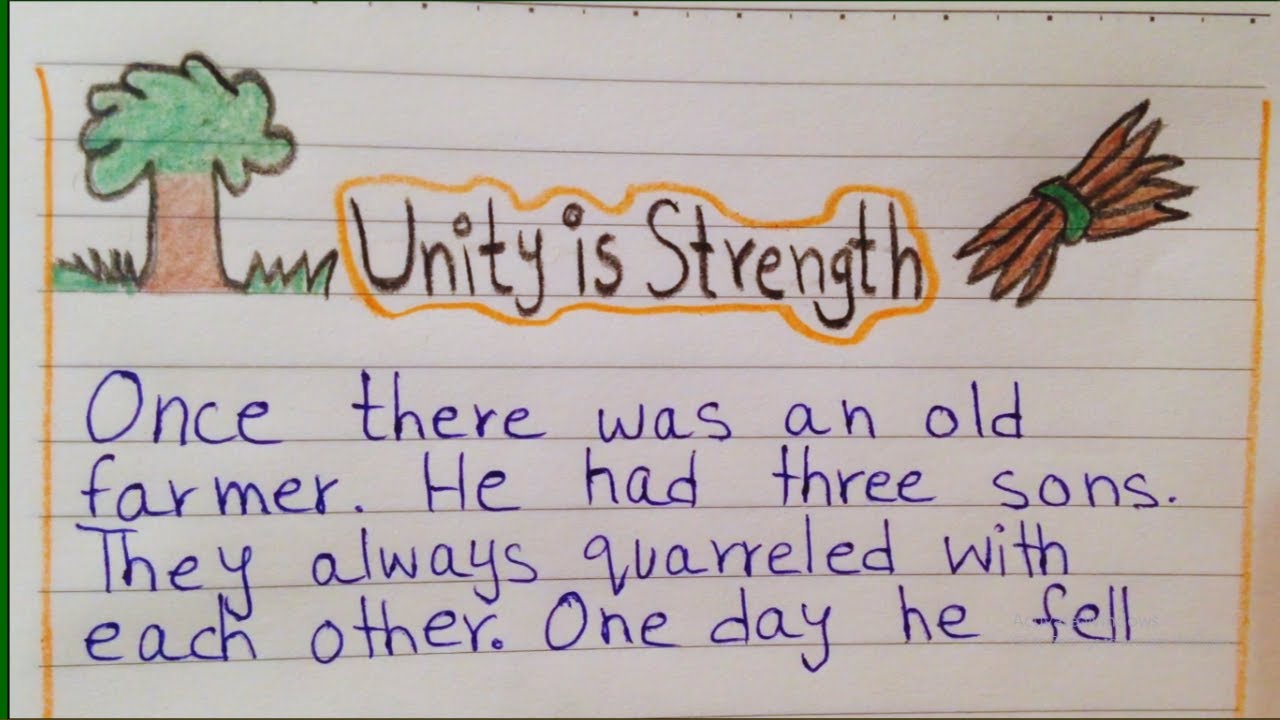 Unity is Strength
Once there was an old
farmer. He had three sons.
They always quarreled with
each other. One day he fell
Activate Windows